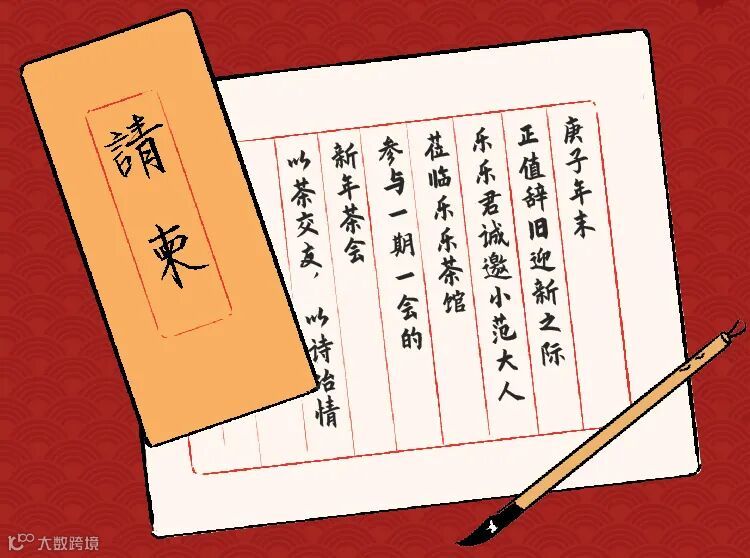 請柬
庚子年末
正值辞旧迎新之际
乐乐君诚邀小范大人
莅临乐乐茶馆
参与一期一会的
新年茶会
以茶交友，以诗冶情
大数跨境